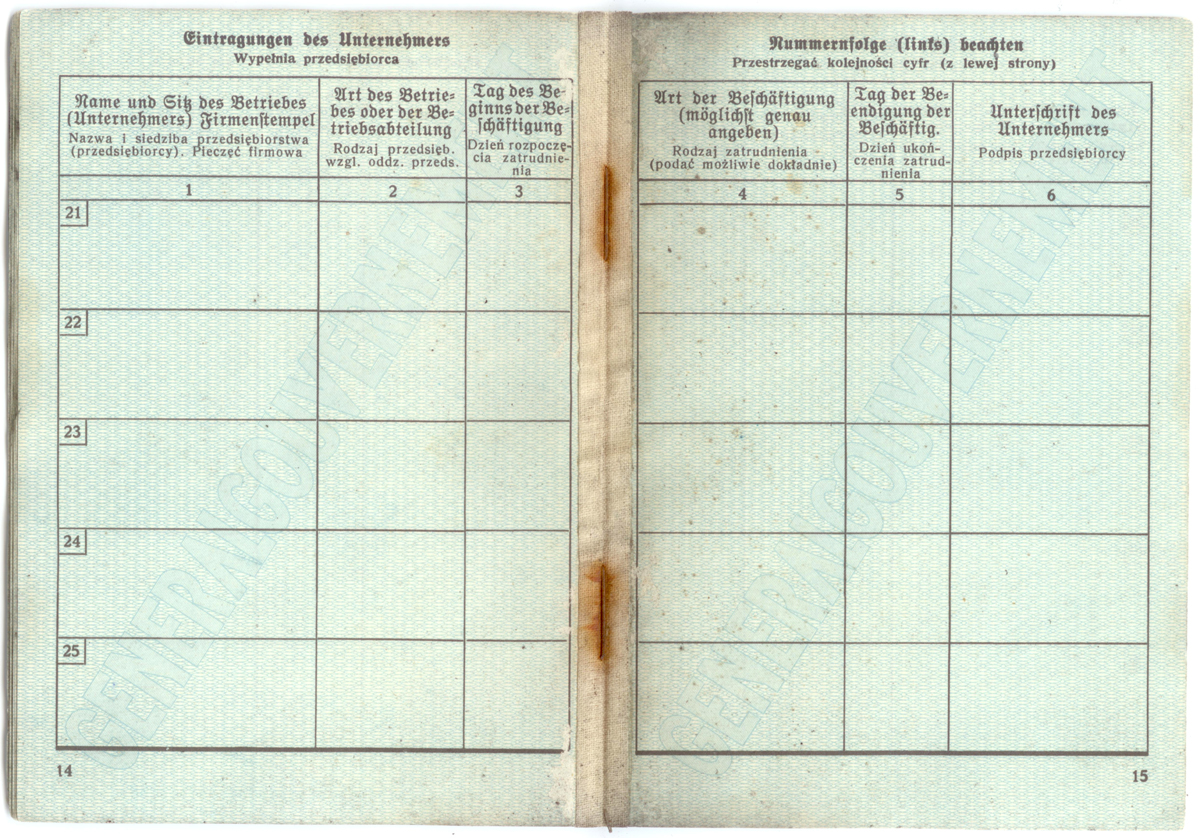 Eintragungen des Unternehmers
Wypełnia przedsiębiorca
Name und Sitz des Betriebes
(Unternehmers) Firmenstempel
Nazwa i siedziba przedsiębiorstwa
(przedsiębiorcy). Pieczęć firmowa
Art des Betrie-
bes oder der Be-
triebsabteilung
Rodzaj przedsięb.
wzgl. oddz. przeds.
Tag des Be-
ginns der Be-
schäftigung
Dzień rozpoczę-
cia zatrudnie-
nia
1
2
3
21
22
23
24
25
GENERALGOUVERNEMENT
14
Nummernfolge (links) beachten
Przestrzegać kolejności cyfr (z lewej strony)
Art der Beschäftigung
(möglichst genau
angeben)
Rodzaj zatrudnienia
(podać możliwie dokładnie)
Tag der Be-
endigung der
Beschäftig.
Dzień ukoń-
czenia zatrud-
nienia
Unterschrift des
Unternehmers
Podpis przedsiębiorcy
4
5
6
GENERALGOUVERNEMENT
15